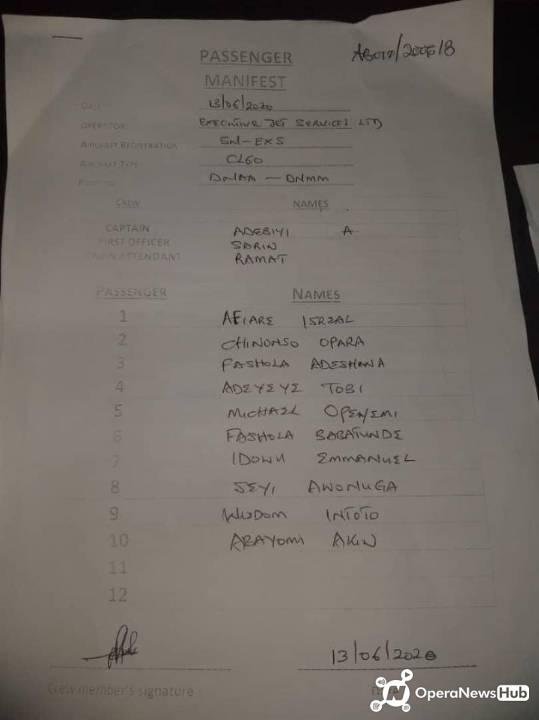 PASSENGER
MANIFEST
DATE 13/06/2020
OPERATOR EXECUTIVE JET SERVICES LTD
AIRCRAFT REGISTRATION 5N-EXS
AIRCRAFT TYPE CL60
DNAA - DNMM
CREW NAMES
CAPTAIN ADEBIYI A
FIRST OFFICER SORIN
CABIN ATTENDANT RAMAT
PASSENGER NAMES
1 AFIARE ISREAL
2 CHINONSO OPARA
3 FASHOLA ADESHINA
4 ADEYEYE TOBI
5 MICHAEL OPEYEMI
6 FASHOLA BABATUNDE
7 IDOWU EMMANUEL
8 SEYI AWONUGA
9 WISDOM INTOTO
10 ABAYOMI AKIN
11
12
13/06/2020
Crew member's signature
OperaNewsHub